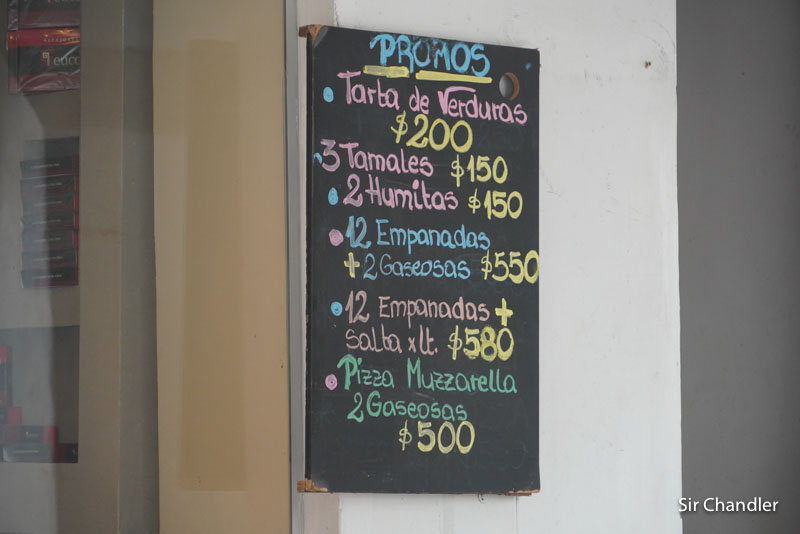 PROMOS
Tarta de Verduras
$200
3 Tamales $150
2 Humitas $150
12 Empanadas
+ 2 Gaseosas $550
12 Empanadas +
Salta x lt. $580
Pizza Muzzarella
2 Gaseosas
$500
Sir Chandler